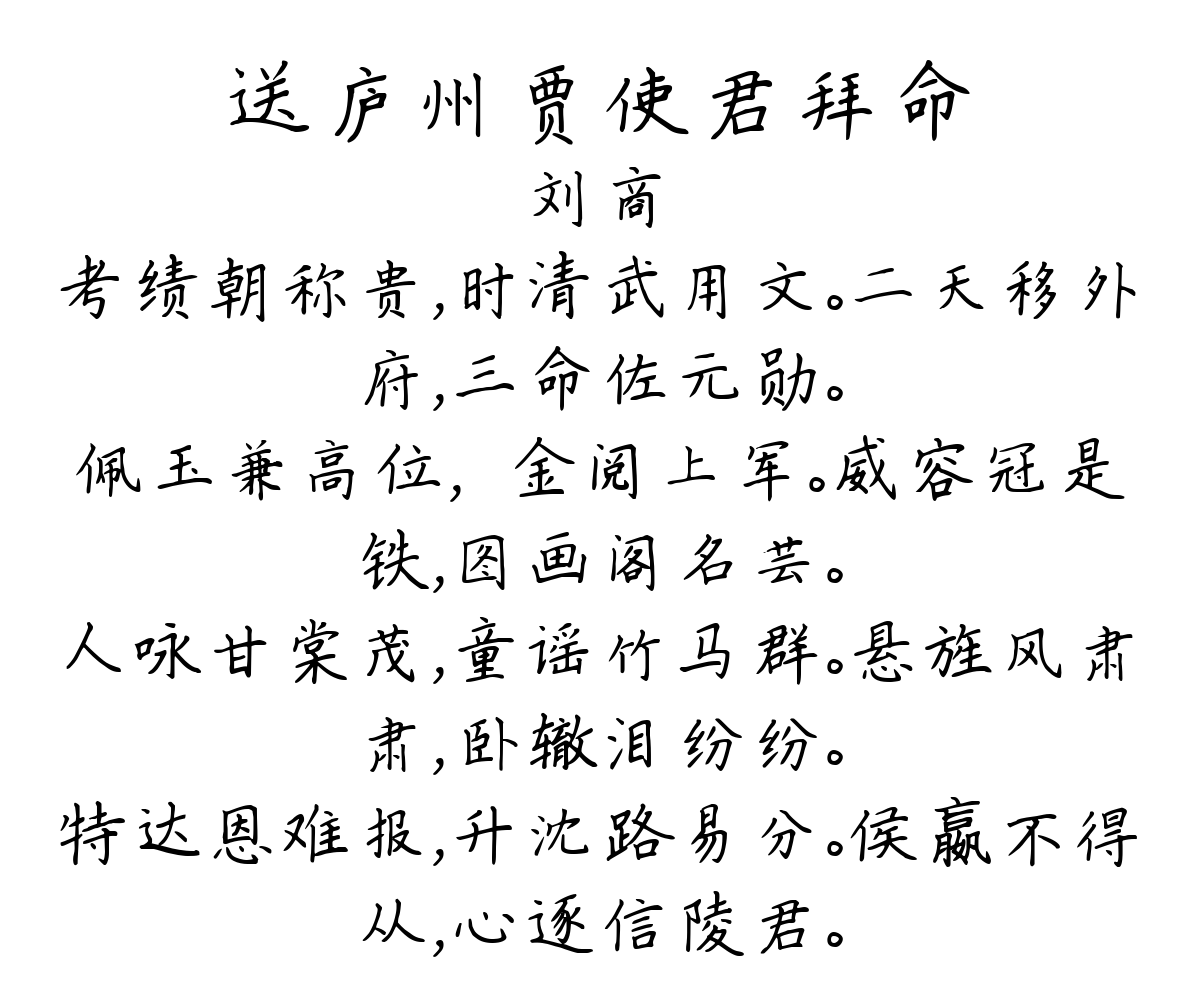 送庐州贾使君拜命
刘商
考绩朝称贵,时清武用文。二天移外
府,三命佐元勋。
佩玉兼高位, 金阅上军。威容冠是
铁,图画阁名芸。
人咏甘棠茂,童谣竹马群。悬旌风肃
肃,卧辙泪纷纷。
特达恩难报,升沈路易分。侯嬴不得
从,心逐信陵君。